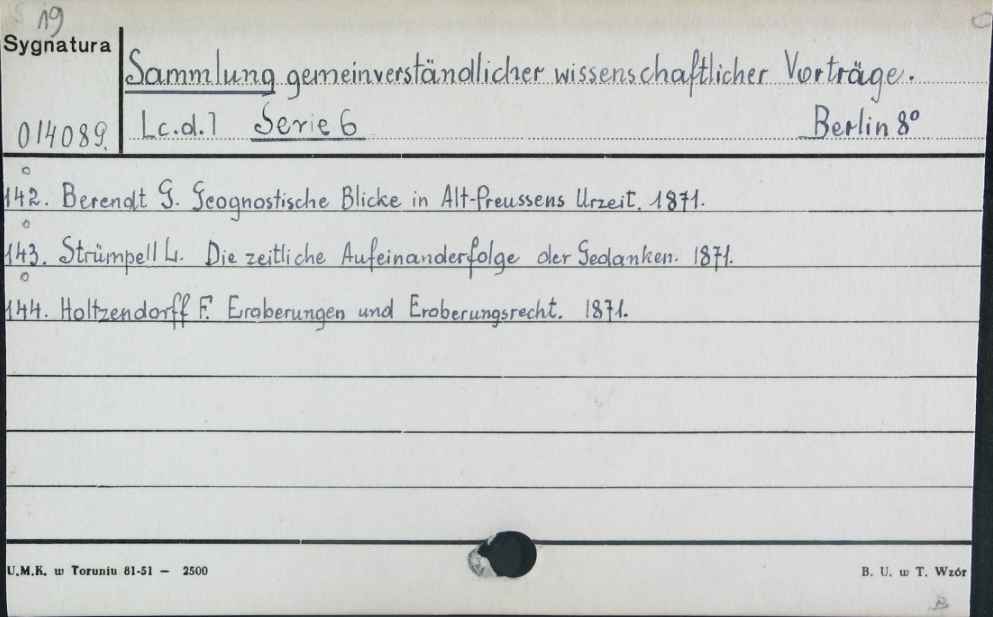 19
Sygnatura
Sammlung gemeinverständlicher wissenschaftlicher Vorträge.
014089. Lc.d.1 Serie 6 Berlin 8°
142. Berendt G. Geognostische Blicke in Alt-Preussens Urzeit. 1871.
143. Strümpell L. Die zeitliche Aufeinanderfolge der Gedanken. 1871.
144. Holtzendorff F. Eroberungen und Eroberungsrecht. 1871.
U.M.K. w Toruniu 81-51 — 2500 B. U. w T. Wzór
B